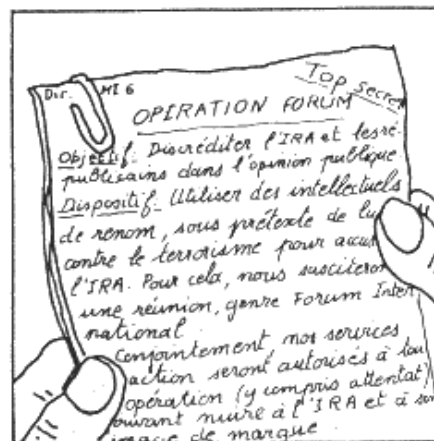 Dir. MI 6
Top secret
OPIRATION FORUM
Objectif. Discréditer l'IRA et les ré-
publicains dans l'opinion publique.
Dispositif. Utiliser des intellectuels
de renom, sous prétexte de lu
contre le terrorisme pour accu
l'IRA. Pour cela, nous susciteron
une réunion, genre Forum Inter
national
Conjointement nos services
action seront autorisés à tou
opération (y compris attentat)
ouvant nuire à l'IRA et à son
image de marque